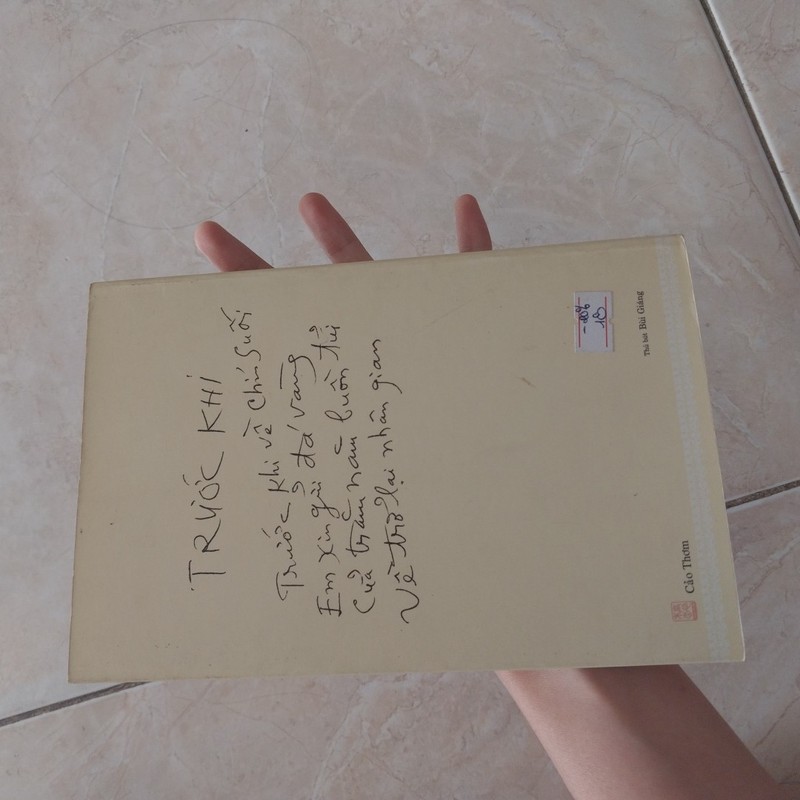 TRƯỚC KHI
Trước khi về chín suối
Em xin gửi đá vàng
Của trăm năm buồn tủi
Về trở lại nhân gian
-20%
Thủ bút Bùi Giáng
Cảo Thơm